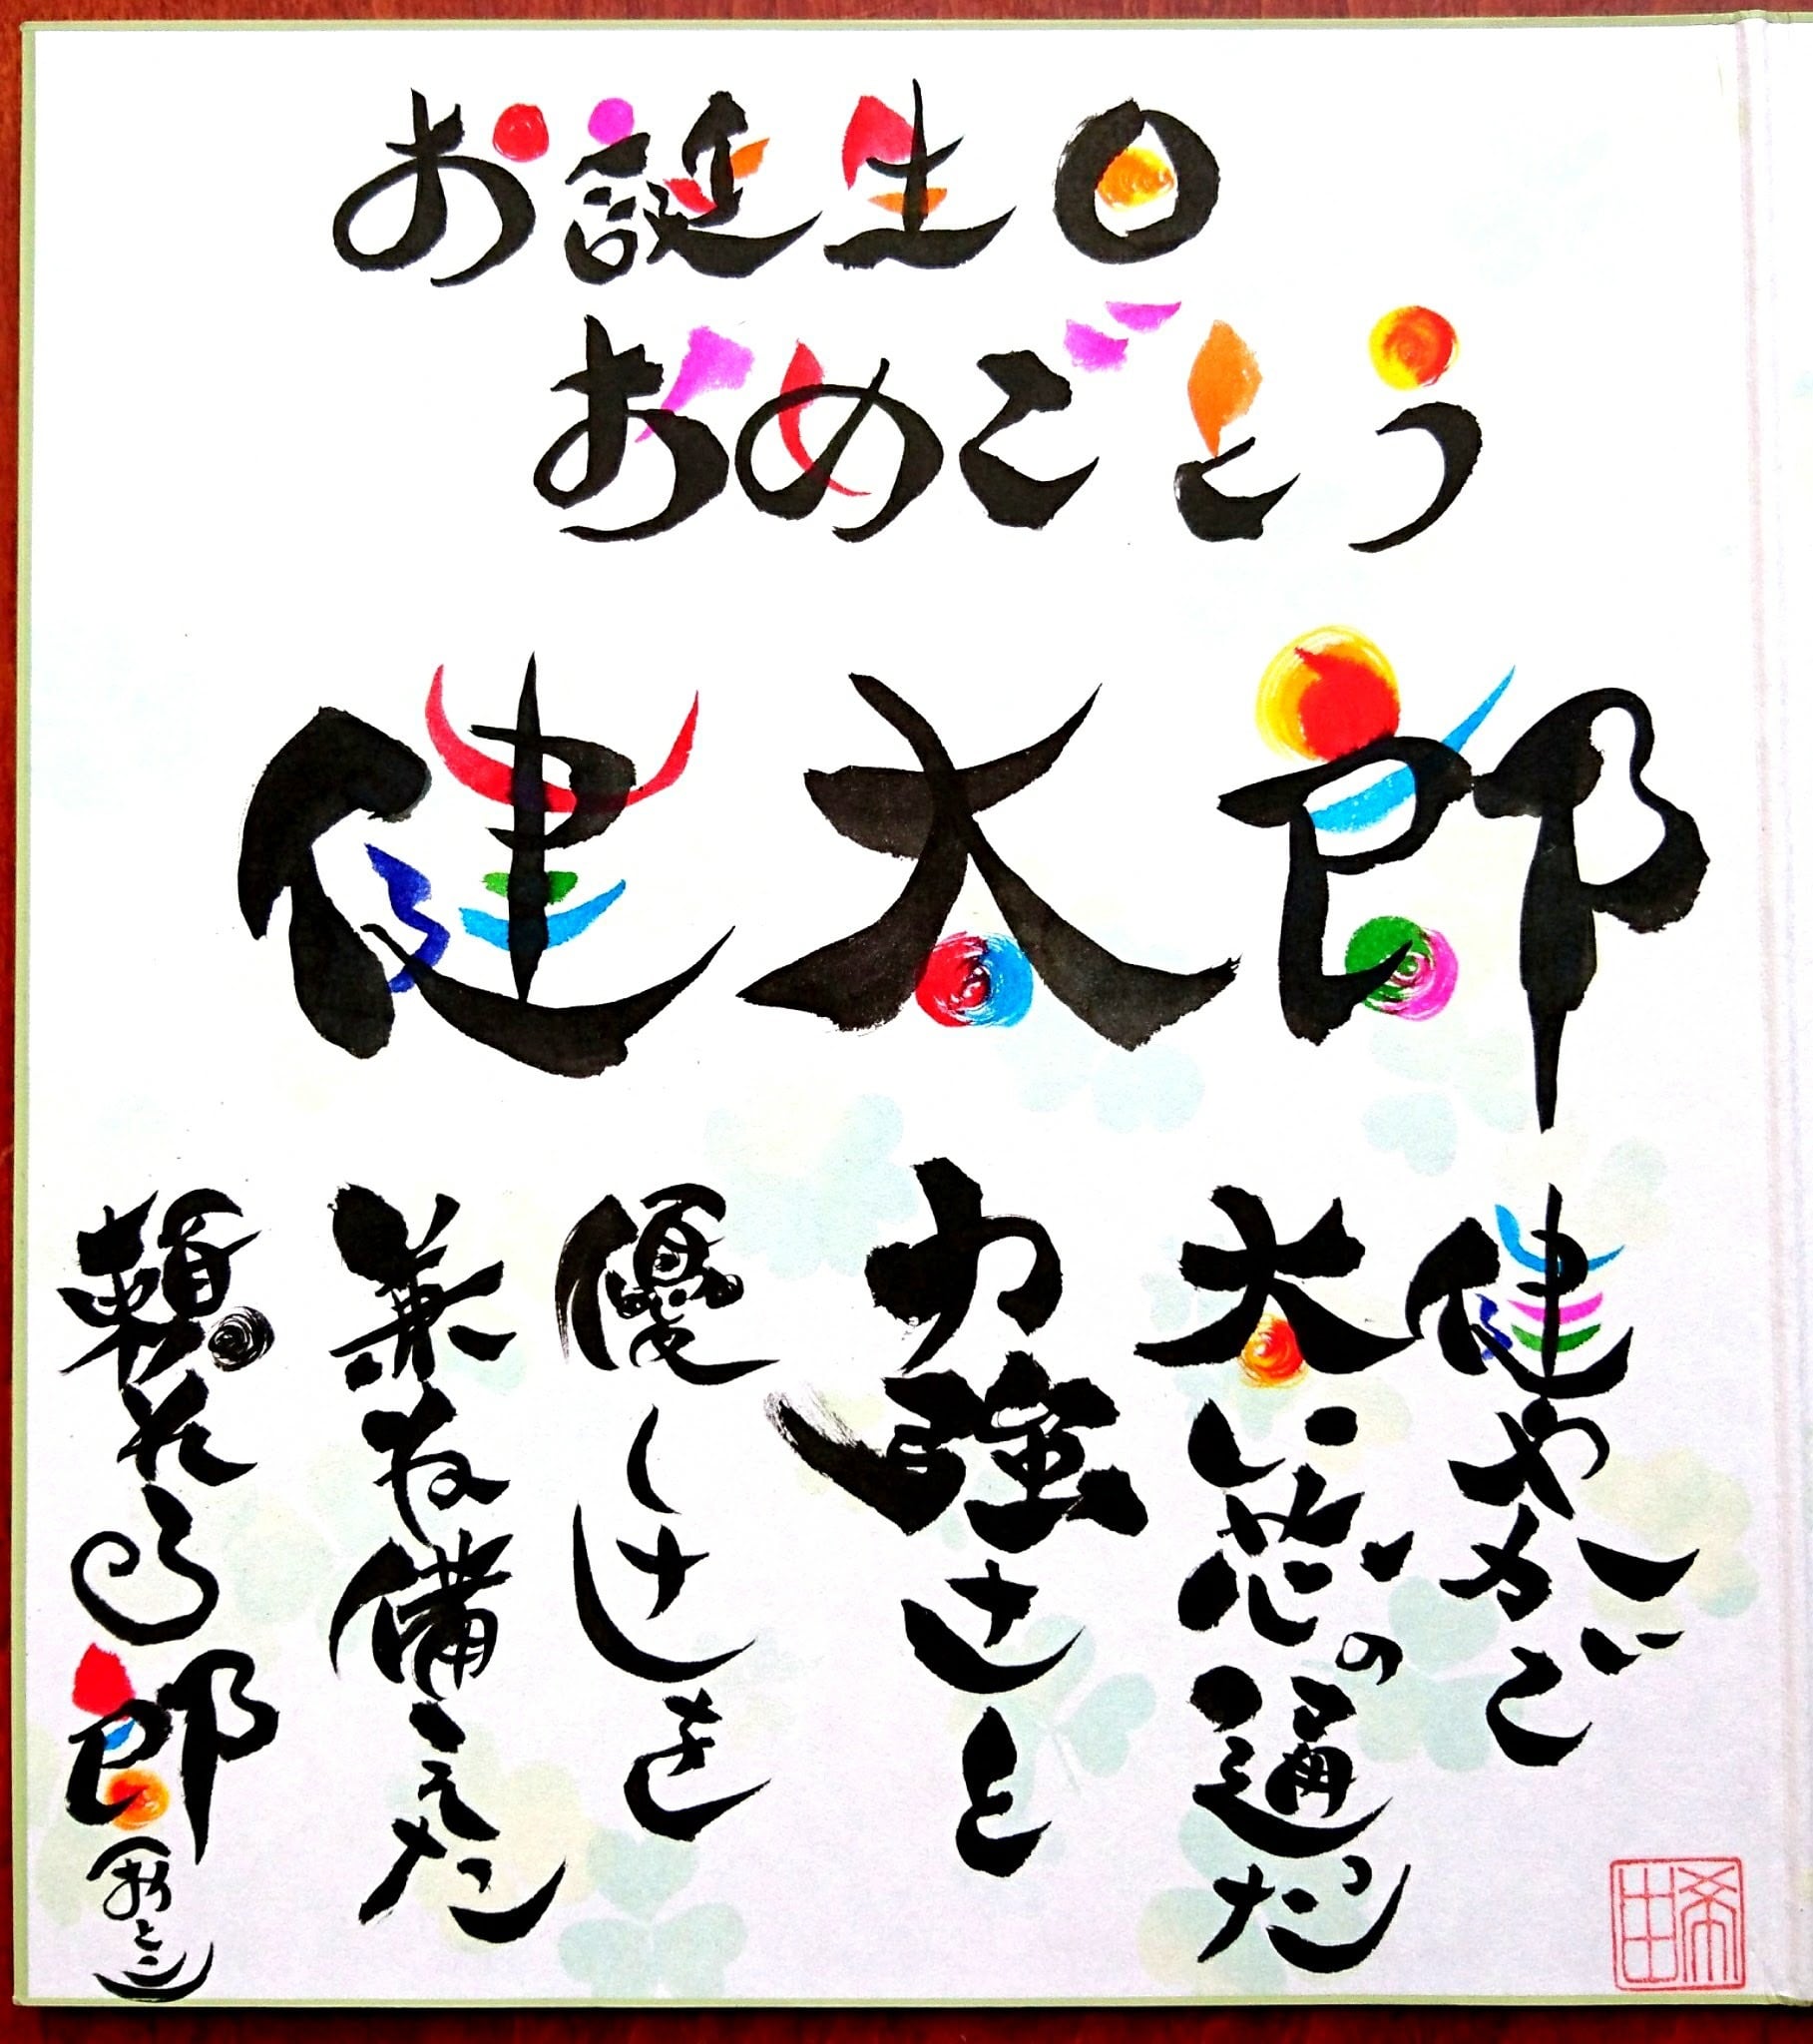 お誕生日
おめでとう
健太郎
健やかで
太い芯の通った
力強さと
優しさを
兼ね備えた
頼れる郎(おとこ)